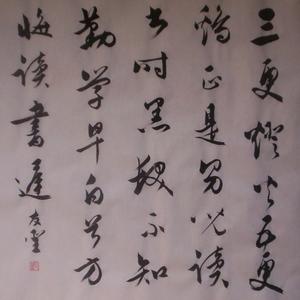 三更燈火五更
鸡正是男儿读
书时黑髮不知
勤学早白首方
悔读書遲